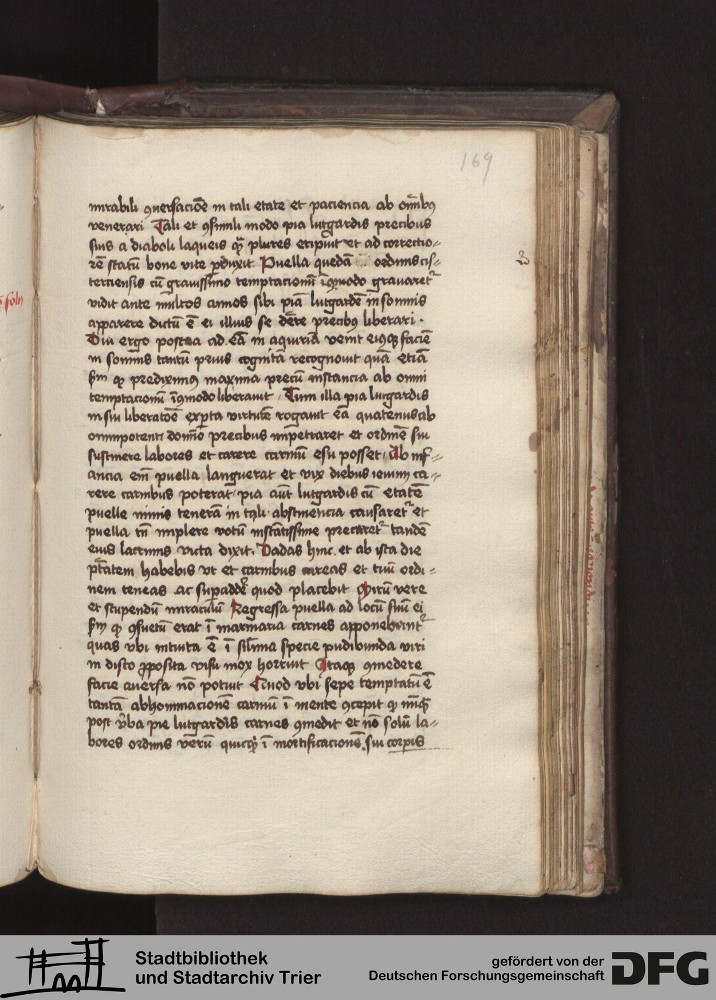 169
mirabili ꝯversacōe in tali etate et paciencia ab oīnbꝰ
venerari Tali et ꝯsimili modo pia lutgardis precibus
suis a diaboli laqueis qͣ plures eripuit et ad correctio⸗
rē statū bone vite pduxit. Puella quedā ordinis cis⸗
terciensis cū gravissimo temptacionū īcōmodo gravaret᷑
vidit ante multos annos sibi piā lutgardē in somnis
apparere dictū ē ei illius se dēre precibꝰ liberari .
Diu ergo postea ad eā in aquiriā venit eiꝰqꝫ faciē
in somnis tantū prius cognitā recognouit quā etiā
ſm qꝫ prediximꝰ maxima precū instancia ab omni
temptacionū īcōmodo liberauit . Tum illa pia lutgardis
in sui liberatōe expta virtute rogauit eā quatenus ab
omnipotenti domīo precibus impetraret et ordinē sui
sustinere labores et carere carniū esu posset . Ab inf⸗
ancia enī puella languerat et vix diebus ieiunij ca⸗
rere carnibus poterat . pia aūt lutgardis cū etatē
puelle nimis tenerā in tali abstinencia causaret᷑ et
puella tn̄ implere votū instātissime precaret᷑ tandē
eius lacrimis victa dixit . Vadas hinc . et ab ista die
ptātem habebis vt et carnibus careas et tuū ordi⸗
nem teneas ac supaddē quod placebit Mirū vere
et stupendū miraculū Regressa puella ad locū suū ei
ſm qꝫ ꝯsuetū erat ī infirmaria carnes apponebant᷑
quas vbi intuita ē ī silīma specie pudibunda viri
in disco ꝓposita visu mox horruit Itaqꝫ ꝯmedere
facie auersa nō potuit Quod vbi sepe temptatū ē
tantā abhominacionē carniū ī mente ꝯcepit qꝫ nūqͣ
post v̄ba pie lutgardis carnes ꝯmedit et nō solū la⸗
bores ordinis verū quicqͥd ī mortificacionē sui corpis
Stadtbibliothek
und Stadtarchiv Trier
gefördert von der
Deutschen Forschungsgemeinschaft
DFG